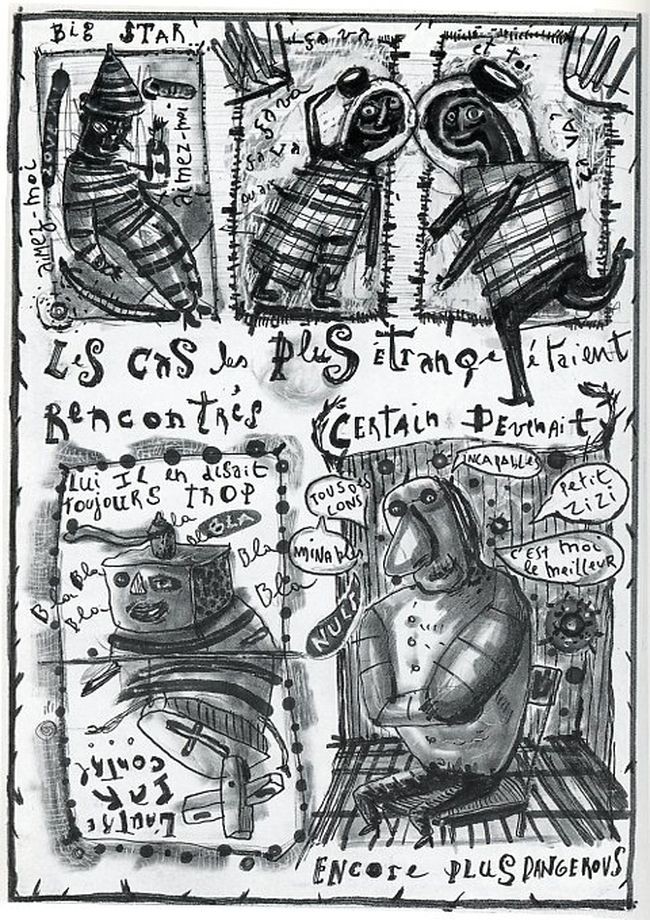 BIG STAR
aimez-moi
LOVE
aimez-moi
ça va
ça va
ça va
ouais
et toi
ça va?
LES CAS les PLUS ÉTRANGE étaient
RENCONTRÉS
CERTAIN DEVENAIT
LUI IL en disait
toujours TROP
Bla
Bla
Bla
Bla Bla
Bla
L'AUTRE
PAR
CONTRE
...
INCAPABLES
TOUS DES
CONS
PETIT
ZIZI
MINABLES
C'EST MOI
le meilleur
NULS
ENCORE PLUS DANGEROUS